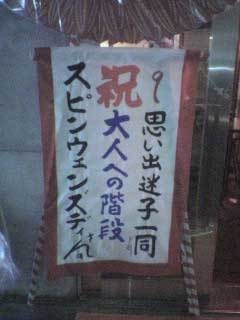 思い出迷子一同
祝
大人への階段
スピンウェンズディさん